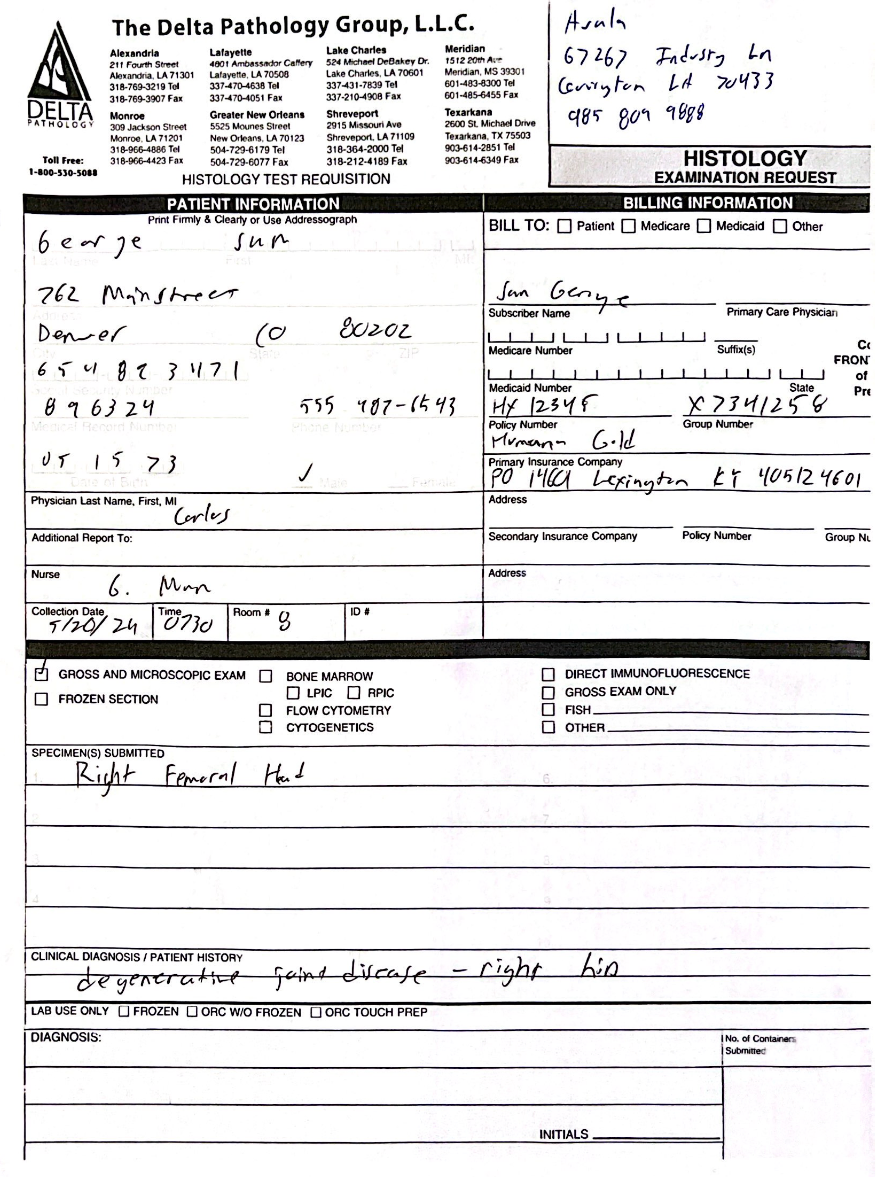 The Delta Pathology Group, L.L.C.
DELTA
PATHOLOGY
Toll Free:
1-800-530-5088
Alexandria
211 Fourth Street
Alexandria, LA 71301
318-769-3219 Tel
318-769-3907 Fax
Monroe
309 Jackson Street
Monroe, LA 71201
318-966-4886 Tel
318-966-4423 Fax
Lafayette
4801 Ambassador Caffery
Lafayette, LA 70508
337-470-4638 Tel
337-470-4051 Fax
Greater New Orleans
5525 Mounes Street
New Orleans, LA 70123
504-729-6179 Tel
504-729-6077 Fax
Lake Charles
524 Michael DeBakey Dr.
Lake Charles, LA 70601
337-431-7839 Tel
337-210-4908 Fax
Shreveport
2915 Missouri Ave
Shreveport, LA 71109
318-364-2000 Tel
318-212-4189 Fax
Meridian
1512 20th Ave
Meridian, MS 39301
601-483-8300 Tel
601-485-6455 Fax
Texarkana
2600 St. Michael Drive
Texarkana, TX 75503
903-614-2851 Tel
903-614-6349 Fax
67267 Industry Ln
Covington LA 70433
985 809 9888
HISTOLOGY
EXAMINATION REQUEST
HISTOLOGY TEST REQUISITION
PATIENT INFORMATION
Print Firmly & Clearly or Use Addressograph
George Sun
Last Name First MI
762 Mainstreet
Address
Denver CO 80202
City State ZIP
654 82 3471
Social Security Number
896324 555 987-6543
Medical Record Number Phone Number
05 15 73
Date of Birth Male Female
Physician Last Name, First, MI
Carlos
Additional Report To:
Nurse
G. Man
Collection Date Time Room # ID #
5/20/24 0730 8
BILLING INFORMATION
BILL TO: Patient Medicare Medicaid Other
Sun George
Subscriber Name Primary Care Physician
Medicare Number Suffix(s)
Medicaid Number State
HX 12345 X7341258
Policy Number Group Number
Humana Gold
Primary Insurance Company
PO 14601 Lexington KY 405124601
Address
Secondary Insurance Company Policy Number Group Nu
Address
Co
FRON
of
Pre
GROSS AND MICROSCOPIC EXAM
FROZEN SECTION
BONE MARROW
LPIC RPIC
FLOW CYTOMETRY
CYTOGENETICS
DIRECT IMMUNOFLUORESCENCE
GROSS EXAM ONLY
FISH
OTHER
SPECIMEN(S) SUBMITTED
1. Right Femoral Head 6.
2. 7.
3. 8.
4. 9.
10.
CLINICAL DIAGNOSIS / PATIENT HISTORY
degenerative joint disease - right hip
LAB USE ONLY FROZEN ORC W/O FROZEN ORC TOUCH PREP
DIAGNOSIS:
No. of Containers
Submitted
INITIALS